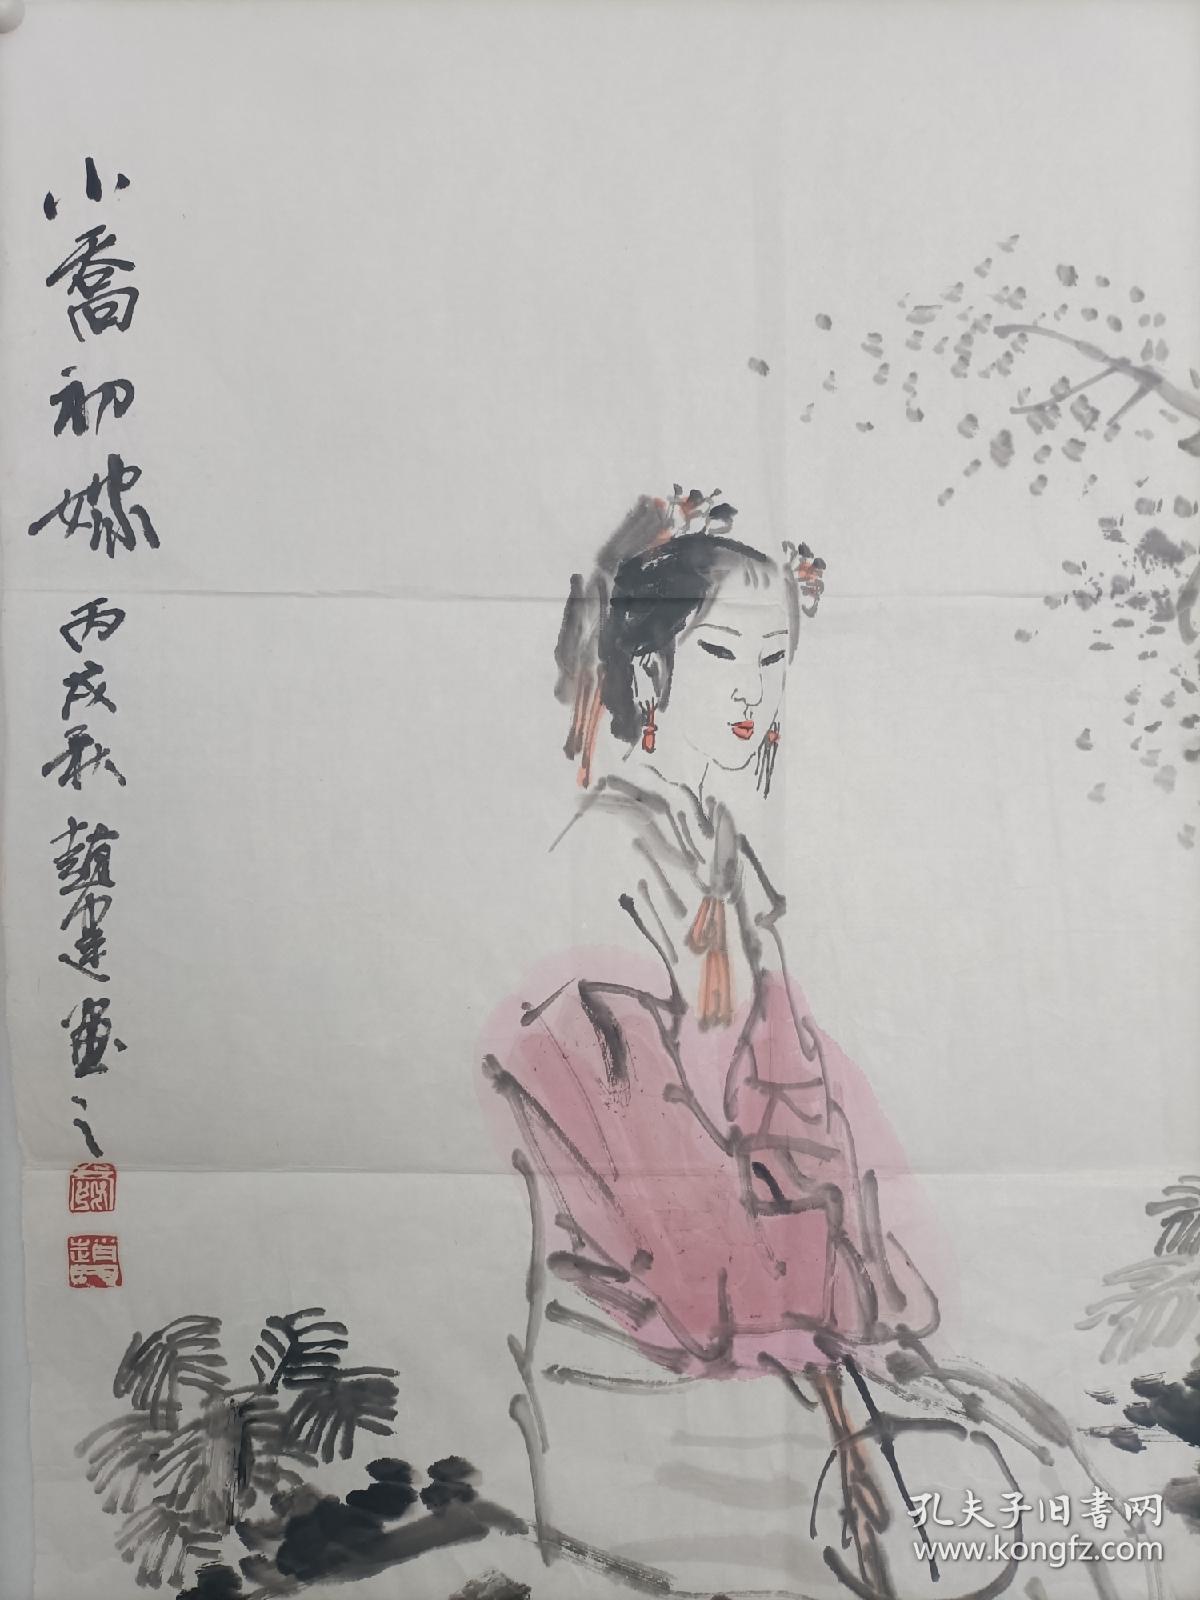 小喬初嫁 丙戌秋 趙建畫之
孔夫子旧书网
www.kongfz.com